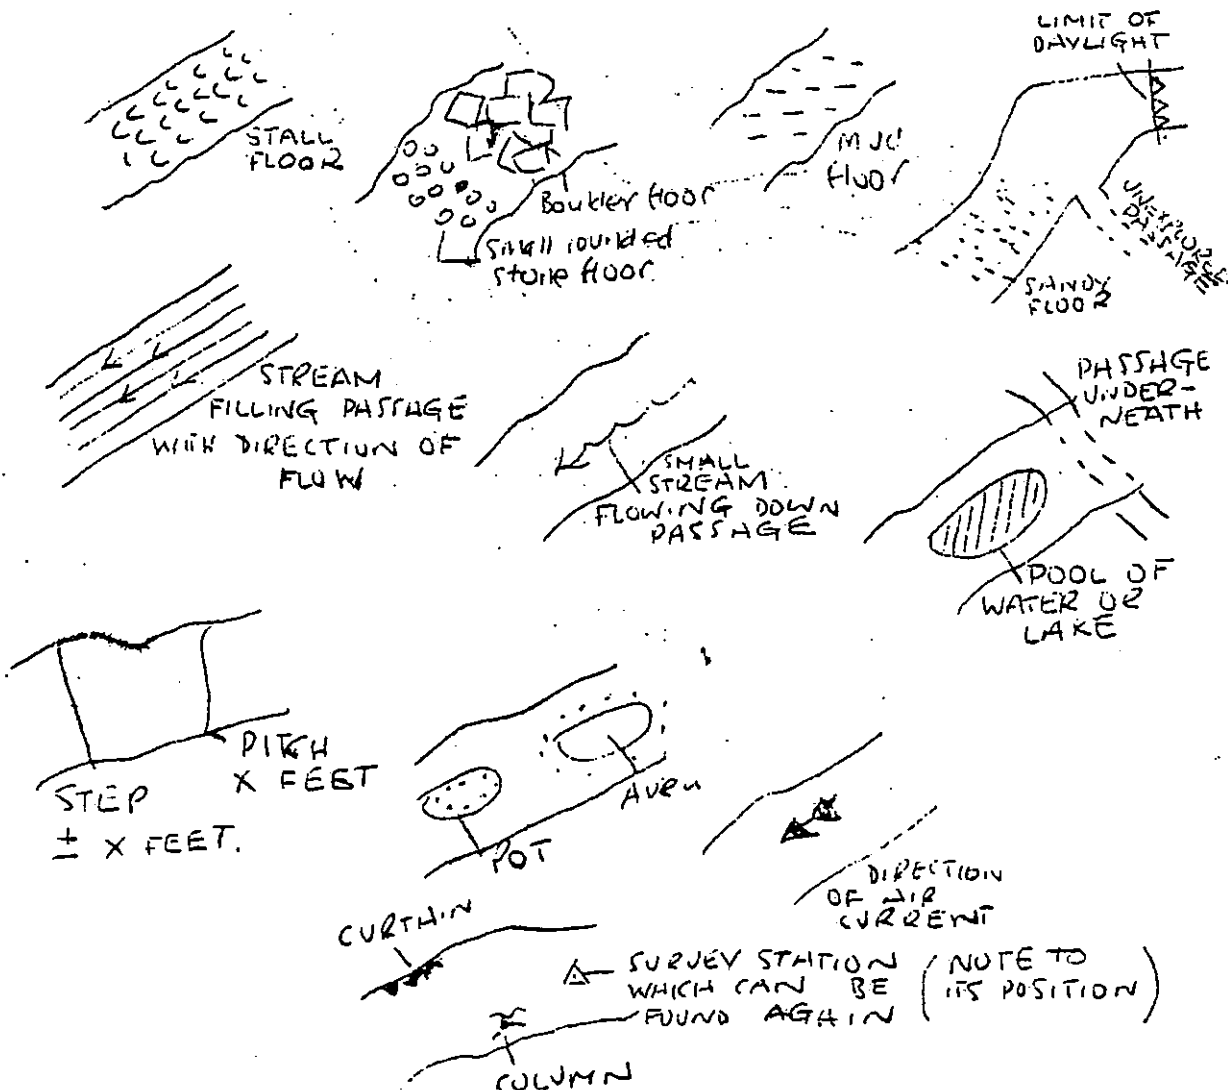 STALL
FLOOR
Boulder floor
Small rounded
stone floor
MUD
floor
LIMIT OF
DAYLIGHT
UNEXPLORED
PASSAGE
SANDY
FLOOR
STREAM
FILLING PASSAGE
WITH DIRECTION OF
FLOW
SMALL
STREAM
FLOWING DOWN
PASSAGE
PASSAGE
UNDER-
NEATH
POOL OF
WATER OR
LAKE
STEP
± X FEET.
PITCH
X FEET
POT
Aven
DIRECTION
OF AIR
CURRENT
CURTAIN
SURVEY STATION
WHICH CAN BE
FOUND AGAIN
(NOTE TO
ITS POSITION)
COLUMN